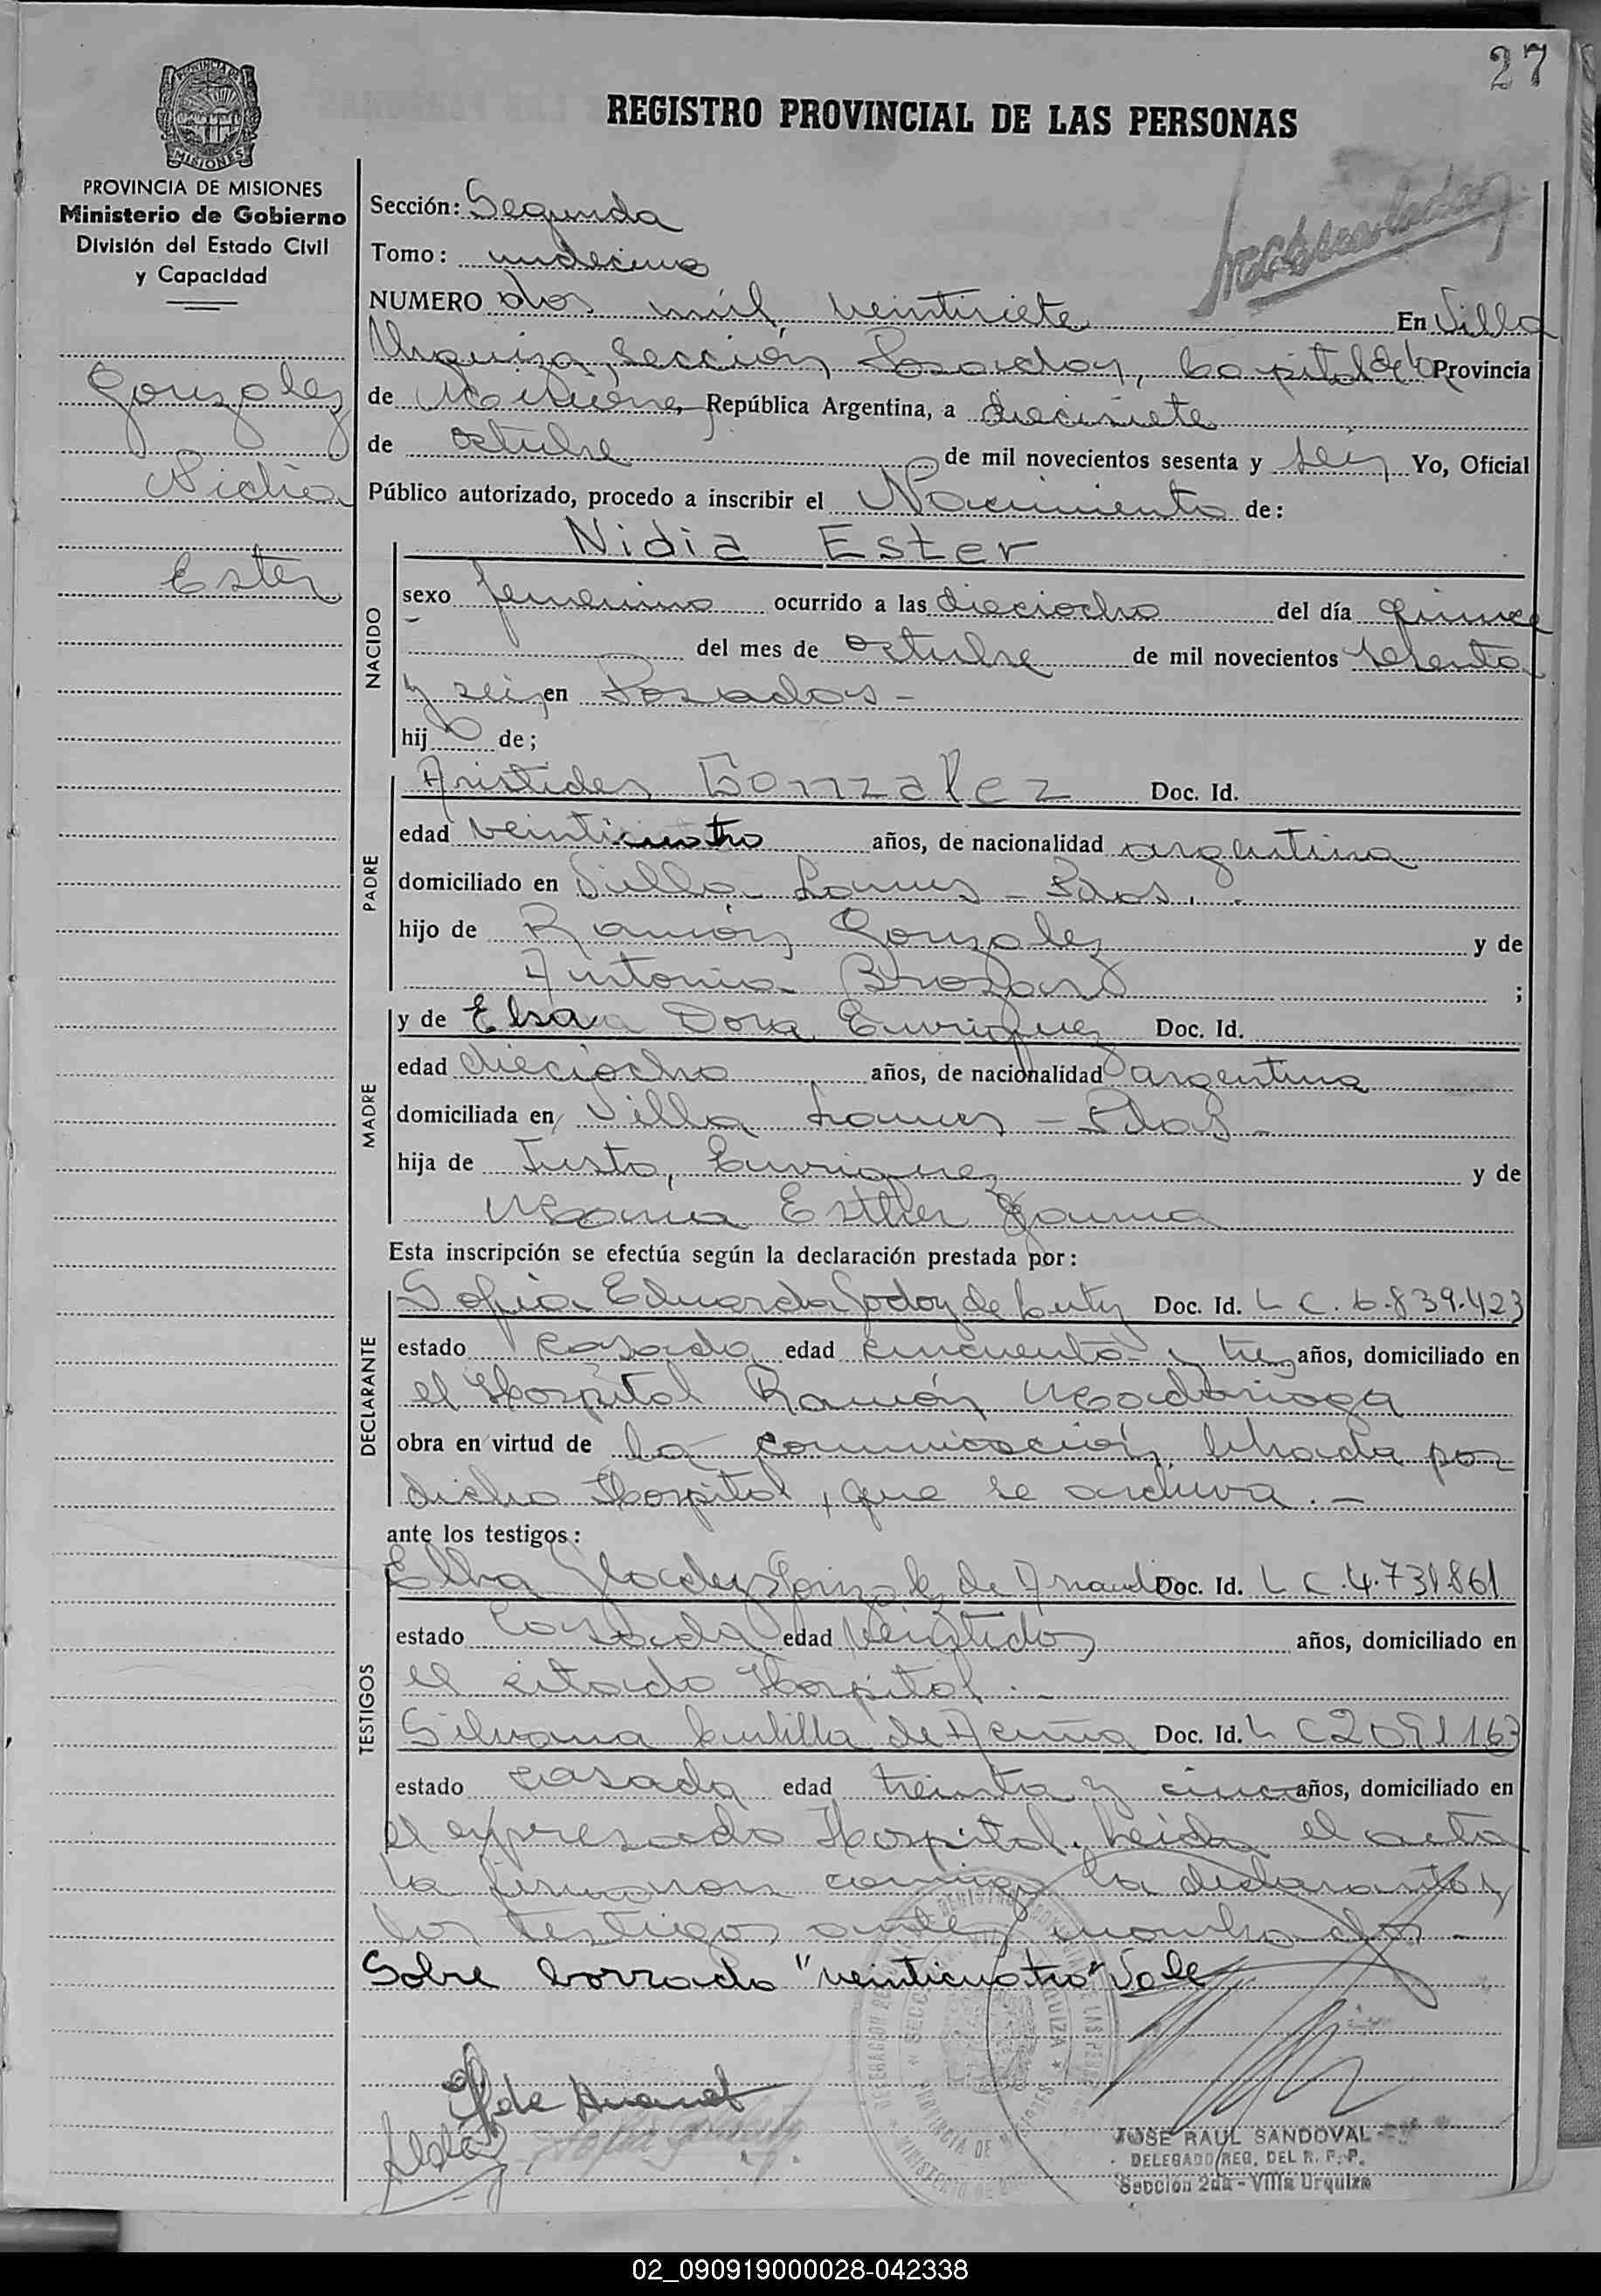 27
REGISTRO PROVINCIAL DE LAS PERSONAS
PROVINCIA DE
MISIONES
PROVINCIA DE MISIONES
Ministerio de Gobierno
División del Estado Civil
y Capacidad
Gonzalez
Nidia
Ester
Sección: Segunda
Tomo: undécimo
NUMERO dos mil veintisiete En Villa
Urquiza, Sección Posadas, Capital de la Provincia
de Misiones República Argentina, a diecisiete
de octubre de mil novecientos sesenta y seis Yo, Oficial
Público autorizado, procedo a inscribir el Nacimiento de:
Nidia Ester
NACIDO
sexo femenino ocurrido a las dieciocho del día quince
del mes de octubre de mil novecientos sesenta
y seis en Posadas-
hij a de;
PADRE
Aristides Gonzalez Doc. Id.
edad veinticuatro años, de nacionalidad argentina
domiciliado en Villa Lanus - Pdas.
hijo de Ramón Gonzalez y de
Antonia ;
MADRE
y de Elsa Dora Enriquez Doc. Id.
edad dieciocho años, de nacionalidad argentina
domiciliada en Villa Lanus - Pdas-
hija de Justo Enriquez y de
María Esther
Esta inscripción se efectúa según la declaración prestada por:
DECLARANTE
Sofia Eduarda Godoy de Doc. Id. L C. 6.839.423
estado casada edad cincuenta y tres años, domiciliado en
el Hospital Ramón Madariaga
obra en virtud de la comunicación librada por
dicho Hospital, que se archiva.-
ante los testigos:
TESTIGOS
Elba Gonzalez de Doc. Id. L C. 4.731.861
estado Casada edad veintidos años, domiciliado en
el citado Hospital.-
Silvana de Acuña Doc. Id. L C 2091163
estado casada edad treinta y cinco años, domiciliado en
el expresado Hospital. Leida el acta
la firmaron conmigo la declarante y
los testigos antes nombrados.-
Sobre borrado "veinticuatro" Vale
JOSE RAUL SANDOVAL
DELEGADO REG. DEL R. P. P.
Sección 2da - Villa Urquiza
02_090919000028-042338